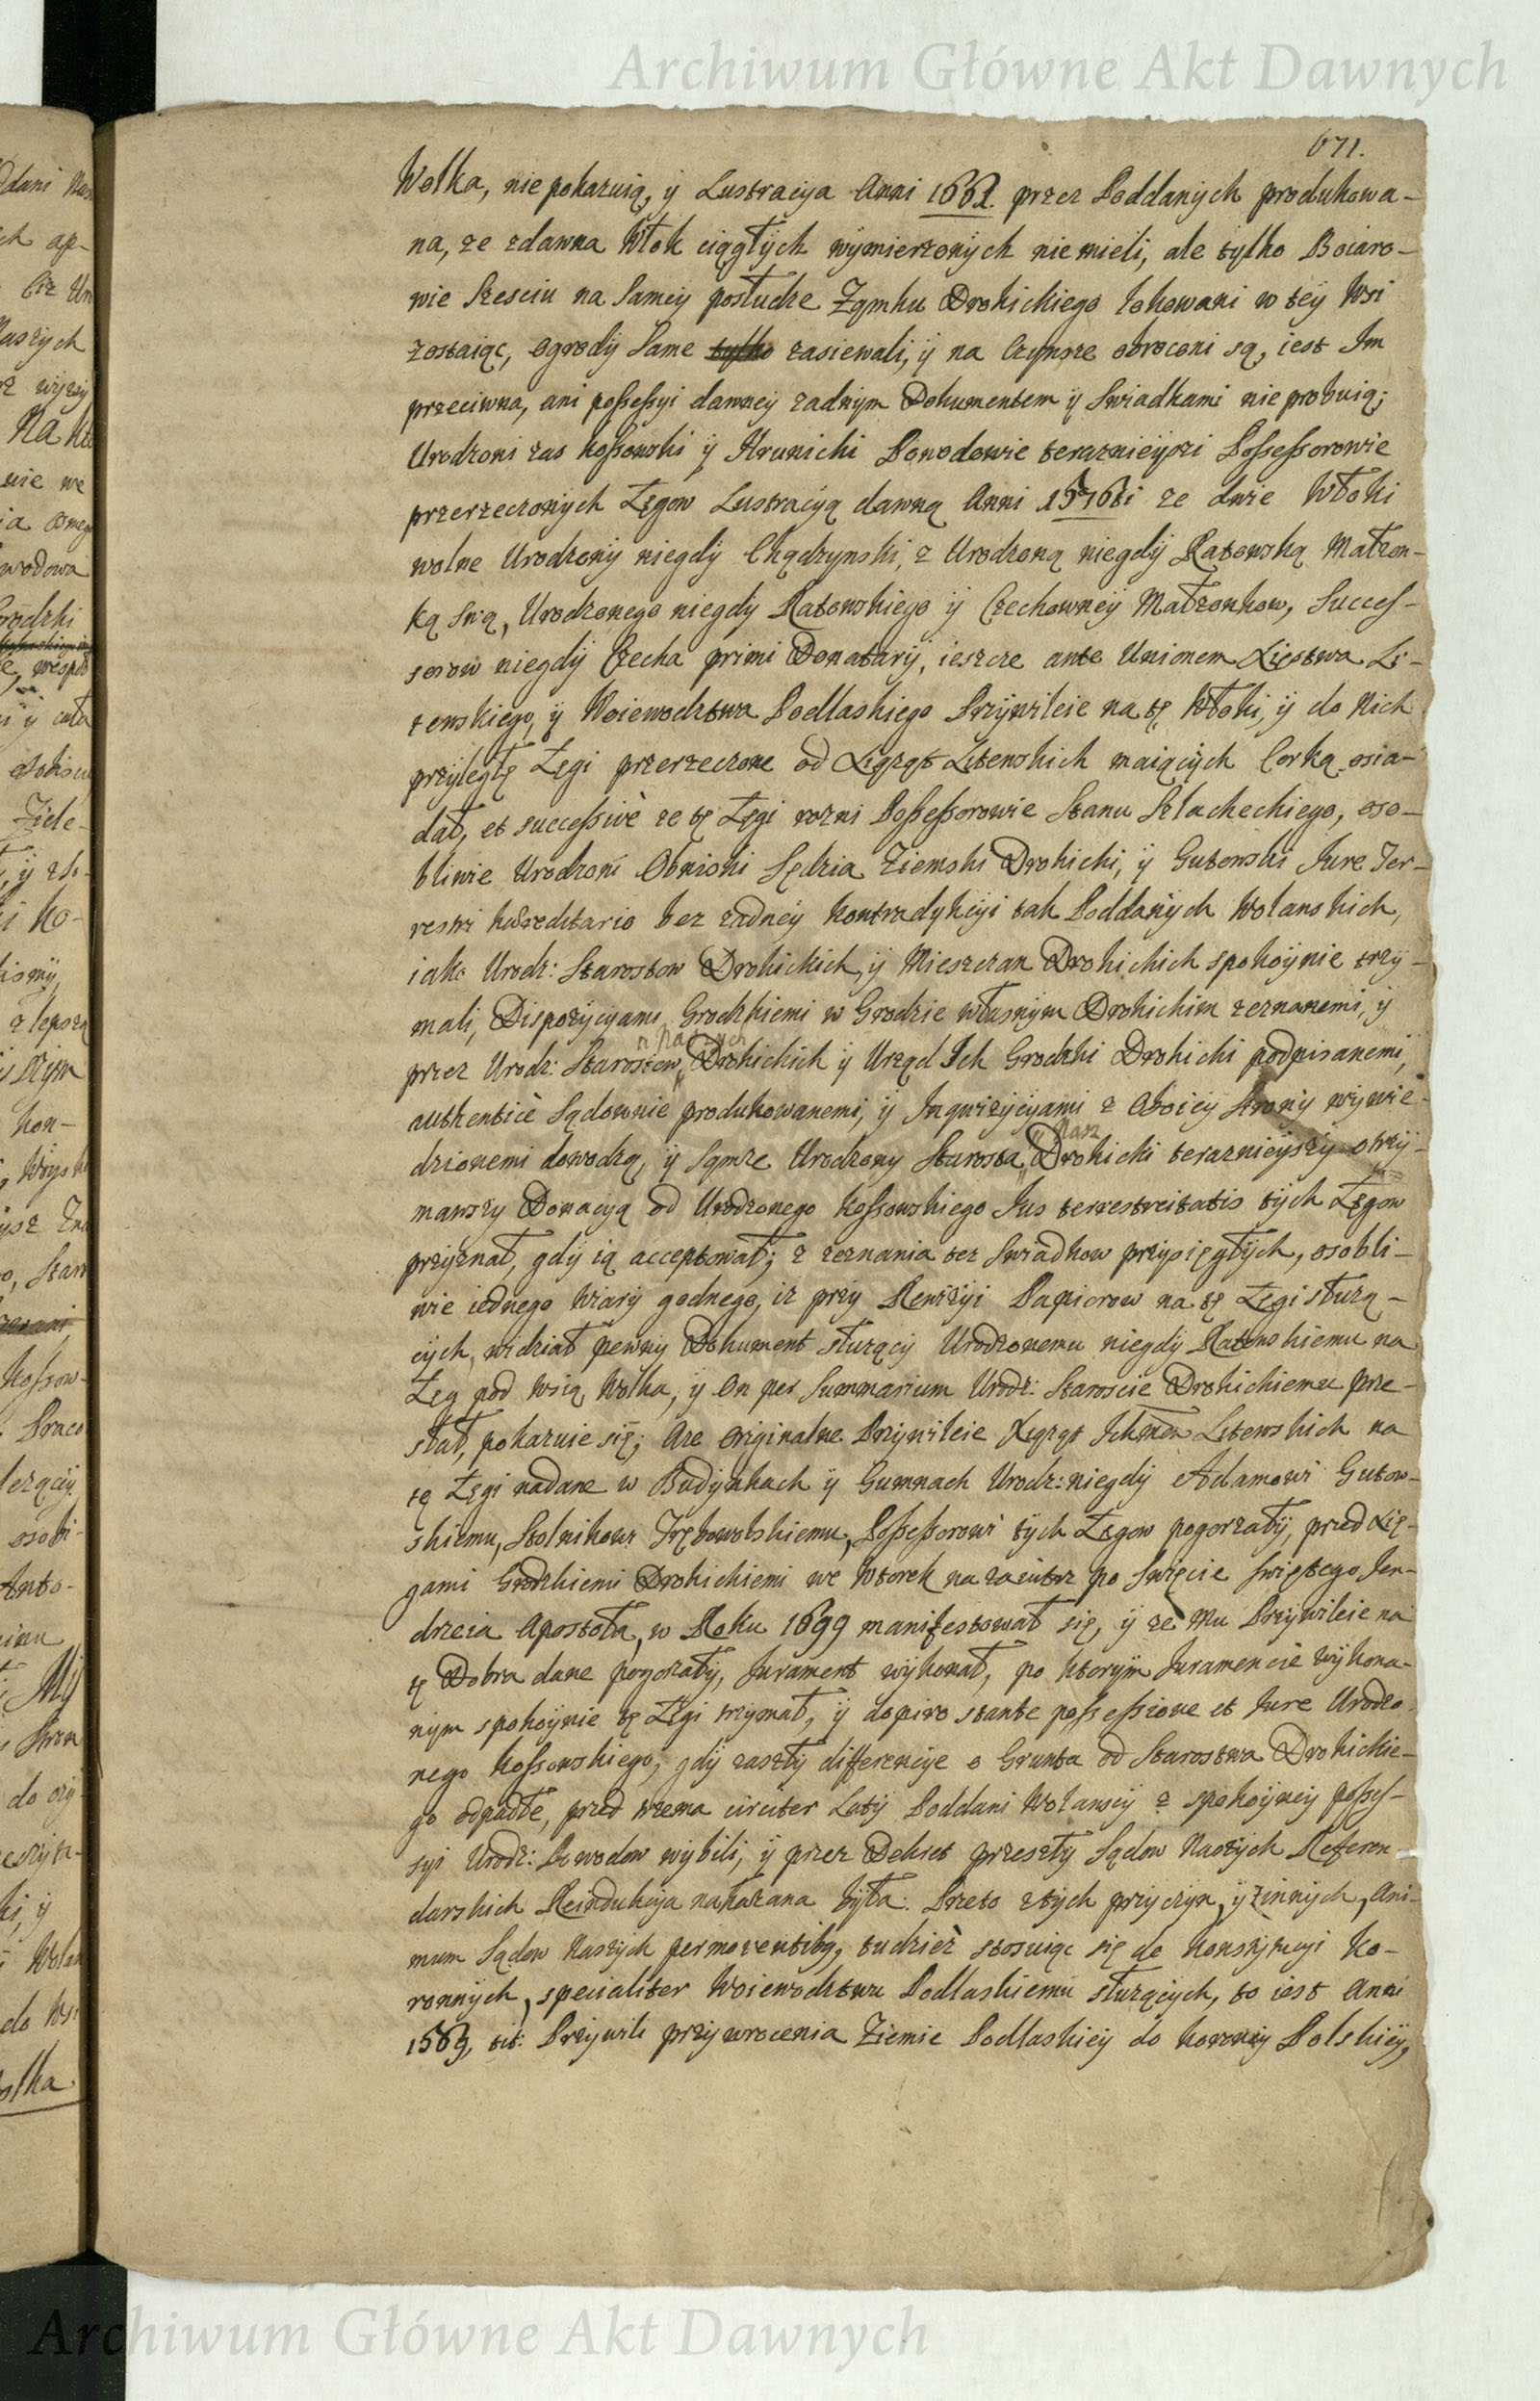 Archiwum Główne Akt Dawnych
671.
Wolka, nie pokazuią, ÿ Lustracÿa Anni 1661. przez Poddanÿch produkowa-
na, ze zdawna Włok ciągłÿch wÿmierzonÿch nie mieli, ale tÿlko Boiaro-
wie Szesciu na Samey posłudze Zamku Drohickiego lokowani w teÿ Wsi
zostaiąc, Ogrodÿ Same tylko zasiewali, ÿ na Czynsze obroceni są, iest Im
przeciwna, ani possessyi dawneÿ zadnÿm Dokumentem ÿ Swiadkami nie probuią;
Urodzoni zas Kossowski ÿ Powodowie teraznieÿszi Possessorowie
przerzeczonÿch Łęgow Lustracÿą dawną Anni 1576ti ze dwie Włoki
wolne Urodzonÿ niegdÿ Chądzynski, z Urodzoną niegdÿ Ratowską Małżon-
ką swą, Urodzonego niegdÿ Ratowskiego ÿ Czechowneÿ Małżonkow, Succes-
sorow niegdÿ Czecha primi Donatarÿ, ieszcze ante Unionem Xięstwa Li-
tewskiego, ÿ Woiewodztwa Podlaskiego Przÿwileie na tę Włoki, ÿ do Nich
przÿległę Łęgi przerzeczone od Xiążąt Litewskich maiącÿch Corka osia-
dał, et successivè ze tę Łęgi rozni Possessorowie Stanu Szlacheckiego, oso-
bliwie Urodzoni Obniski Sędzia Ziemski Drohicki, ÿ Gutowski Jure Ter-
restri haereditario bez zadneÿ kontradykcyi tak Poddanÿch Wolanskich,
iako Urodz: Starostow Drohickich, ÿ Mieszczan Drohickich spokoÿnie trzÿ-
mali, Dispozycÿami Grodzkiemi w Grodzie własnÿm Drohickim zeznanemi, ÿ
przez Urodz: Starostow Drohickich ÿ Urząd Ich Grodzki Drohicki podpisanemi,
authenticè Sądownie produkowanemi, ÿ Inqwizÿcÿami z Oboieÿ Stronÿ wÿwie-
Nasz
dzionemi dowodzą, ÿ Samze Urodzony Starosta Drohicki teraznieÿszÿ otrzÿ-
mawszÿ Donacÿą od Urodzonego Kossowskiego Jus terrestreitatis tÿch Łęgow
przÿznał, gdÿ ią acceptował; z zeznania tez Swiadkow przÿsięgłÿch, osobli-
wie iednego wiarÿ godnego, iz przÿ Rewizÿi Papierow na tę Łęgi służą-
cÿch, widział pewnÿ Dokument służącÿ Urodzonemu niegdÿ Ratowskiemu na
Łęg pod wsią Wolka, ÿ On per Summarium Urodz: Staroscie Drohickiemu prze-
słał, pokazuie się; Aze Originalne Przÿwileie Xiążąt Ichmciow Litewskich na
tę Łęgi nadane w Budÿnkach ÿ Gumnach Urodz: niegdÿ Adamowi Gutow-
skiemu, Stolnikowi Trębowolskiemu, Possessorowi tÿch Łęgow pogorzałÿ, przed Xię-
gami Grodzkiemi Drohickiemi we Wtorek nazaiutrz po Swięcie Swiętego Jen-
drzeia Apostoła, w Roku 1699 manifestował się, ÿ ze Mu Przÿwileie na
tę Dobra dane pogorzałÿ, Jurament wÿkonał, po ktorÿm Juramencie wÿkona-
nÿm spokoÿnie tę Łęgi trzÿmał, ÿ dopiro stante possessione et Jure Urodzo-
nego Kossowskiego, gdÿ zaszłÿ differencÿe o Grunta od Starostwa Drohickie-
go odpadłe, przed trzema circiter Latÿ Poddani Wolanscÿ z spokoÿneÿ posses-
syi Urodz: Powodow wÿbili, ÿ przez Dekret przeszłÿ Sądow Naszÿch Referen-
darskich Reindukcÿa nakazana bÿła: Przeto z tÿch przÿczÿn, ÿ innÿch, Ani-
mum Sądow Naszÿch permoventibg, tudzież stosuiąc się do Konstÿtucyi Ko-
ronnÿch, specialiter Woiewodztwu Podlaskiemu służącÿch, to iest Anni
1569, tit: Przÿwili przÿwrocenia Ziemie Podlaskieÿ do Koronÿ Polskieÿ,
Archiwum Główne Akt Dawnych